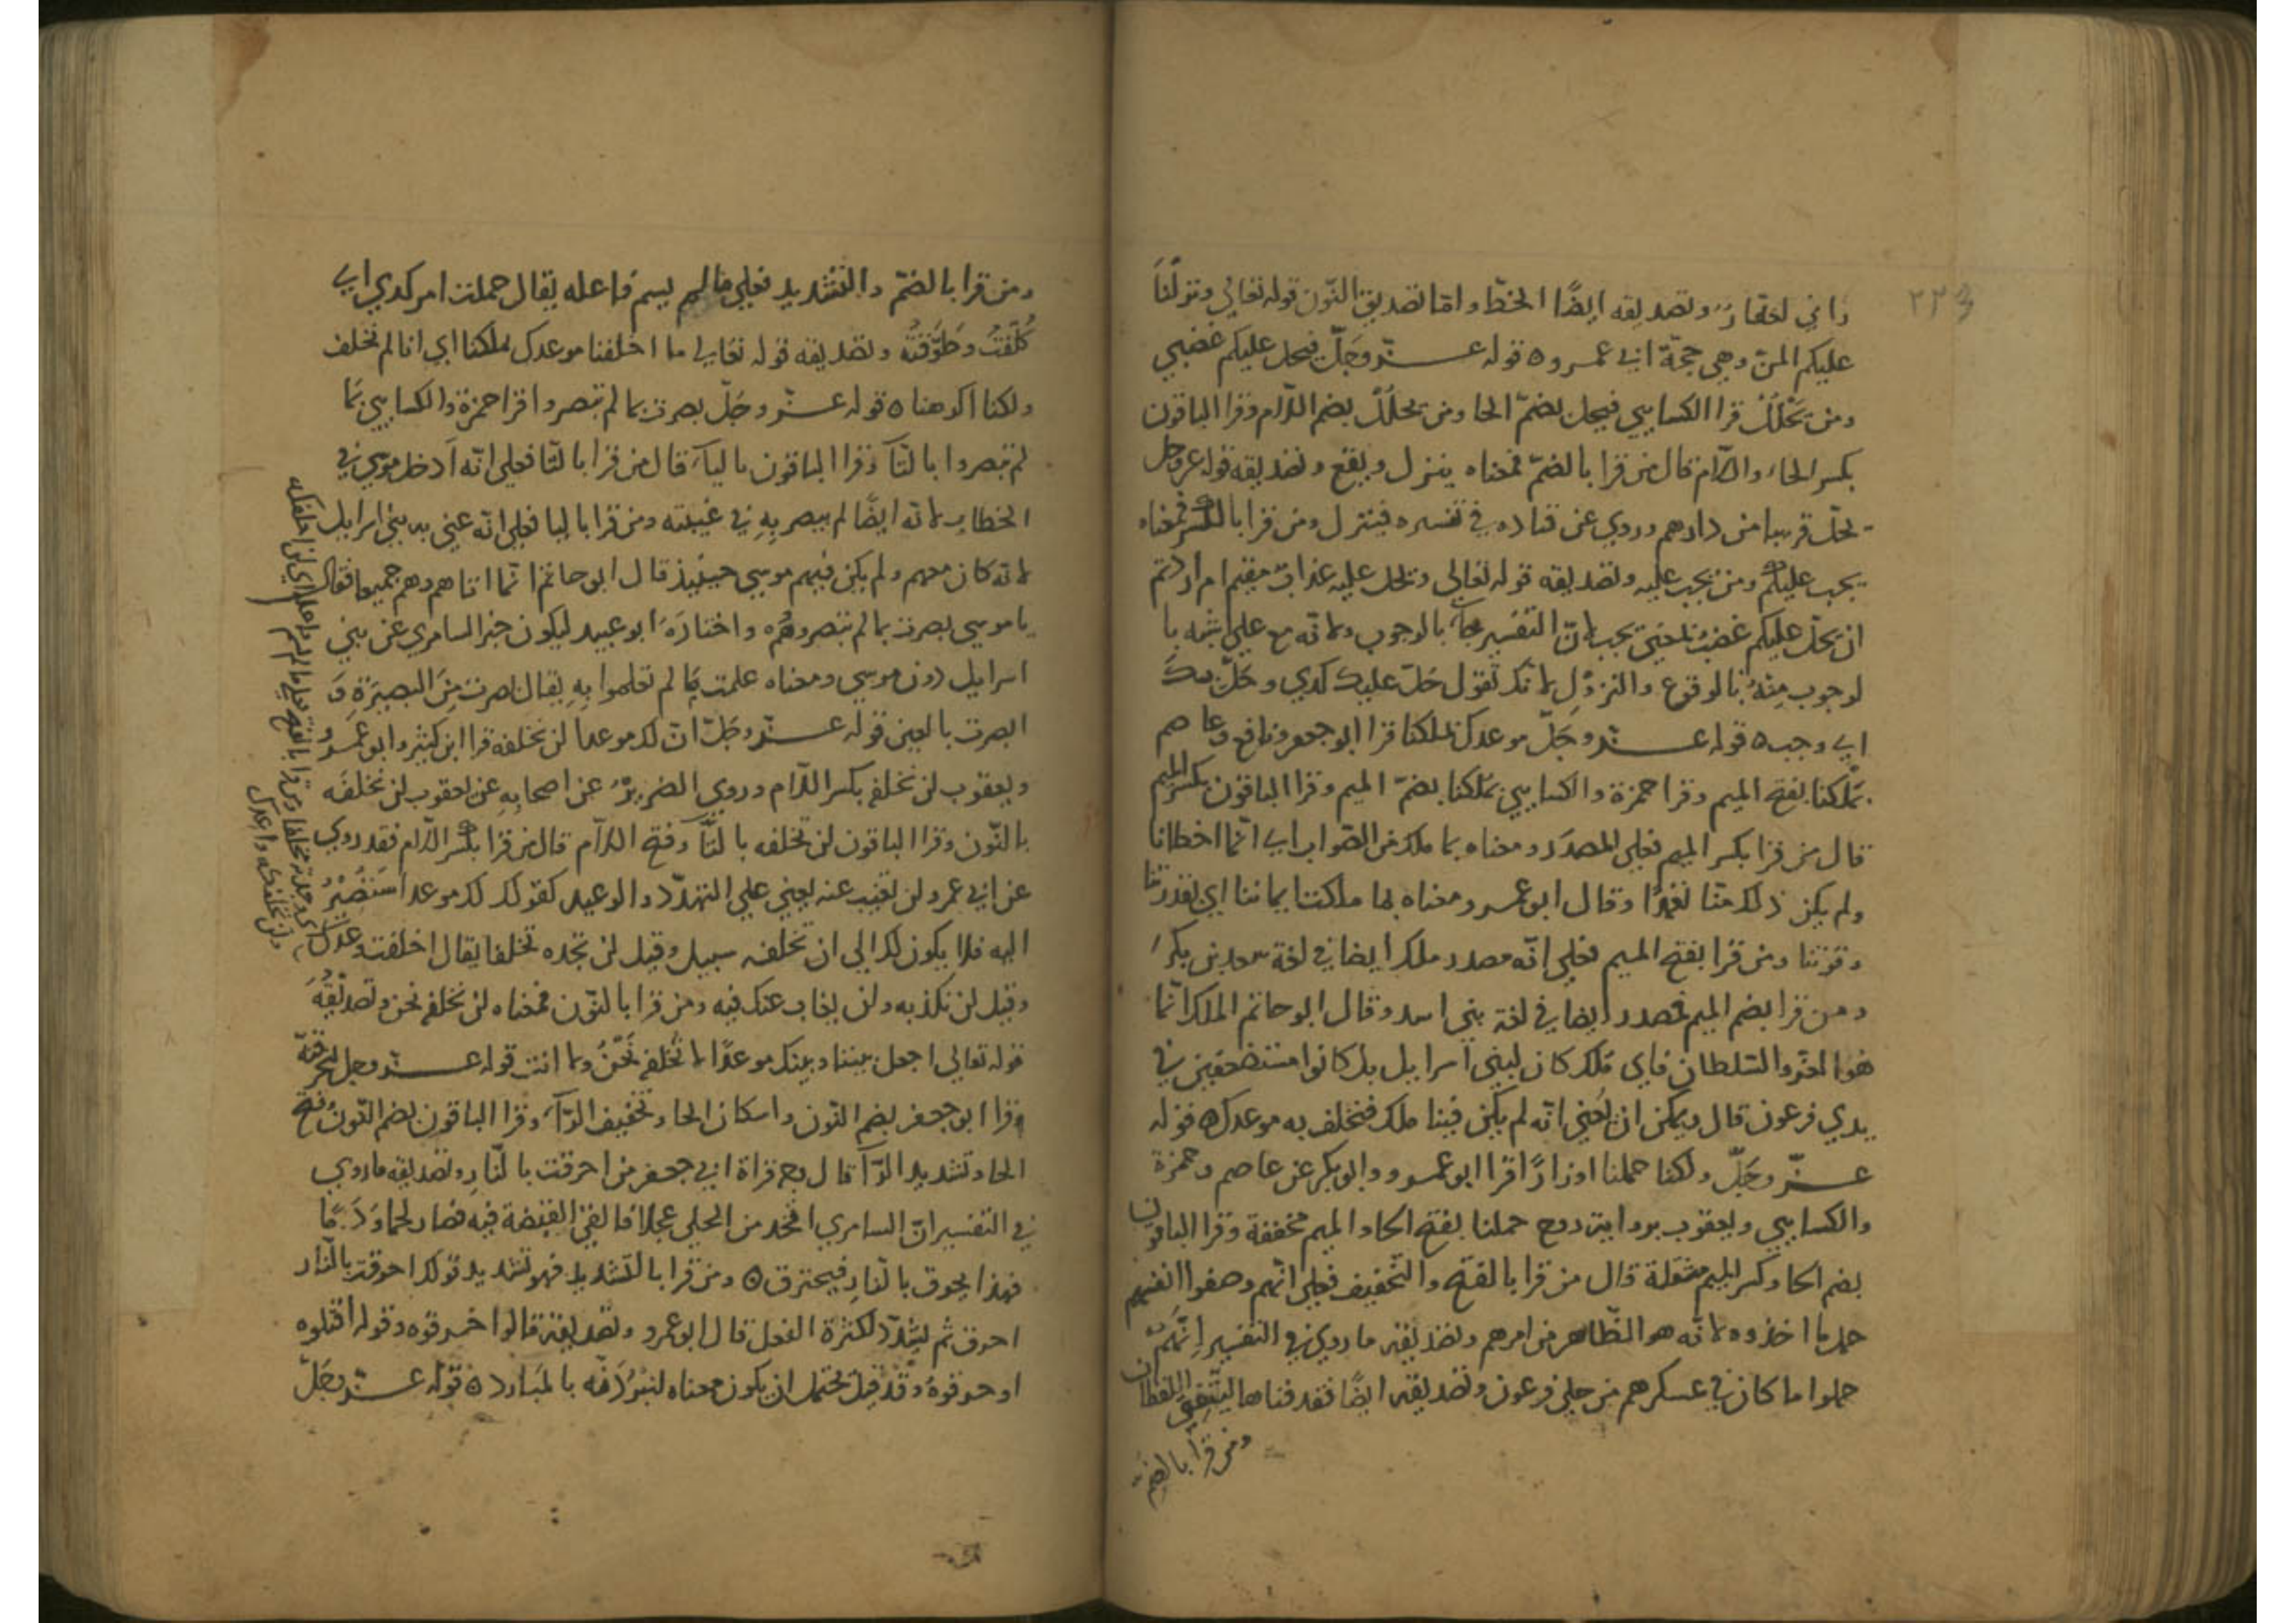 ٢٢٩
واني اختار وتصديقه ايضًا الخطّ واما تصديق النّون قوله تعالي ونزلنَا
عليكم المنّ وهي حجّة ابي عمرو ٥ قوله عزّ وجَلّ فيحل عليكم غضبي
ومن يَحْلُلْ قرا الكسايي فيحل بضمّ الحا ومن يحلُلْ بضم اللّام وقرا الباقون
بكسر الحاء واللّام قال من قرا بالضمّ فمعناه ينزل ويقع وتصديقه قوله عز وجل
تحلّ قريبا من دارهم وروي عن قتاده في تفسيره فينزل ومن قرا بالكسر فمعناه
يجب عليكم ومن يجب عليه وتصديقه قوله تعالي ويحل عليه عذاب مقيم ام اردتم
ان يحل عليكم غضب يعني يجب لانّ التفسير جآء بالوجوب ولانّه مع علي اشبه با
لوجوب مِنْهُ بالوقوع والنزول لانك تقول حَلّ عليك كدي وحَلّ بك
اي وجب ٥ قوله عزّ وجَلّ موعدك بملكنا قرا ابو جعفر ونافع وعاصم
بمَلكنا بفتح الميم وقرا حمزة والكسايي بمُلكنا بضمّ الميم وقرا الباقون بكسر الميم
قال من قرا بكسر الميم فعلي المصدَر ومعناه بما ملك من الصّواب اي انّما اخطانا
ولم يكن ذلك منّا تعمّدًا وقال ابو عمرو معناه بما ملكتنا يماننا اي بقدرتنا
وقوتنا ومن قرا بفتح الميم فعلي انّه مصدر ملك ايضا في لغة سعد بن بكر
ومن قرا بضم الميم فمصدر ايضا في لغة بني اسد وقال ابو حاتم الملك انّما
هو العزّ والسّلطان فاي مُلك كان لبني اسرايل بل كانوا مستضعفين في
يدي فرعون قال ويمكن ان يَعني انّه لم يكن فينا ملك فنخلف به موعدك ٥ قوله
عزّ وجَلّ ولكنا حملنا اوزارًا قرا ابو عمرو وابو بكر عن عاصم وحمزة
والكسايي ويعقوب برواية روح حملنا بفتح الحا والميم مخففة وقرا الباقون
بضم الحا وكسر الميم مثقلة قال من قرا بالفتح والتّخفيف فعلي انّهم وصفوا انفسهم
حمل ما اخذوه لانّه هو الظّاهر من امرهم وتصديقه ما روي في التفسير انّهم
حملوا ما كان في عسكرهم من حلي فرعون وتصديقه ايضًا فقذفناها ليتّفق اللفظان
ومن قرا بالضم
ومن قرا بالضمّ والتّشديد فعلي ما لم يسم فاعله يقال حملت امر كدي اي
كُلّفتُ وطوّقتُه وتصديقه قوله تعالي ما اخلفنا موعدك بملكنا اي انا لم نخلف
ولكنا اكرهنا ٥ قوله عزّ وجَلّ بصرت بما لم يبصروا قرا حمزة والكسايي بمَا
لم تبصروا بالتّآ وقرا الباقون باليآء قال من قرا بالتّا فعلي انّه اَدخل موسي في
الخطاب لانه ايضًا لم يبصر بِهِ في غيبته ومن قرا باليا فعلي انّه عني به بني اسرايل
لانّه كان معهم ولم يكن فيهم موسي حينيذ قال ابو حاتم انّما اتاهم وهم جميعا فقال
يا موسي بصرت بما لم تبصروه واختارَهُ ابو عبيد ليكون خبر السامري عن بني
اسرايل دون موسي ومعناه علمت بمَا لم تعلموا بِهِ يقال بصرت مِنَ البصيرَةِ وَ
ابصرت بالعين قوله عزّ وجَلّ انّ لك موعدا لن تخلفه قرا ابن كثير وابو عمرو
ويعقوب لن تخلفِه بكسر اللّام وروي الضريرُ عن اصحابِهِ عن يعقوب لن نخلفَه
بالنّون وقرا الباقون لن تخلفه بالتّآ وفتح اللّام قال من قرا بكسر اللّام فقد روي
عن ابي عمرو لن تغيب عنه يعني علي التهدّد والوعيد كقولك لك موعد اَستَصيرُ
اليه فلا يكون لك الي ان تخلفه سبيل وقيل لن تجده مخلفا يقال اخلفت وعدك
وقيل لن تكذبه ولن يغاب عنك فيه ومن قرا بالنّون فمعناه لن نخلفه نحن وتصديقُهُ
قوله تعالي اجعل بيننا وبينك موعدًا لا نُخلفه نَحْنُ ولا انت قوله عزّ وجل لنحرقنّه
قرا ابو جعفر بضم النّون واسكان الحا وتخفيف الرّآء وقرا الباقون بضم النّون وفتح
الحا وتشديد الرّآ قال وجه قراة ابي جعفر من احرقت بالنّارِ وتصديقه ما روي
في التفسير انّ السامري اتّخذ من الحلي عجلا فالقي القبضة فيه فصار لحما وَدَمًا
فهذا يحرق بالنّارِ فيحترق ٥ ومن قرا بالتّشديد فهو تشديد قولك احرقت بالنّار
احرق ثم يُشدّد لكثرة الفعل قال ابو عمرو وتصديقه قالوا حرقوه وقوله اقتلوه
او حرقوهُ وقَدْ قيل يحتمل ان يكون معناه لنبرُدَنّه بالمَبارد ٥ قوله عزّ وجَلّ